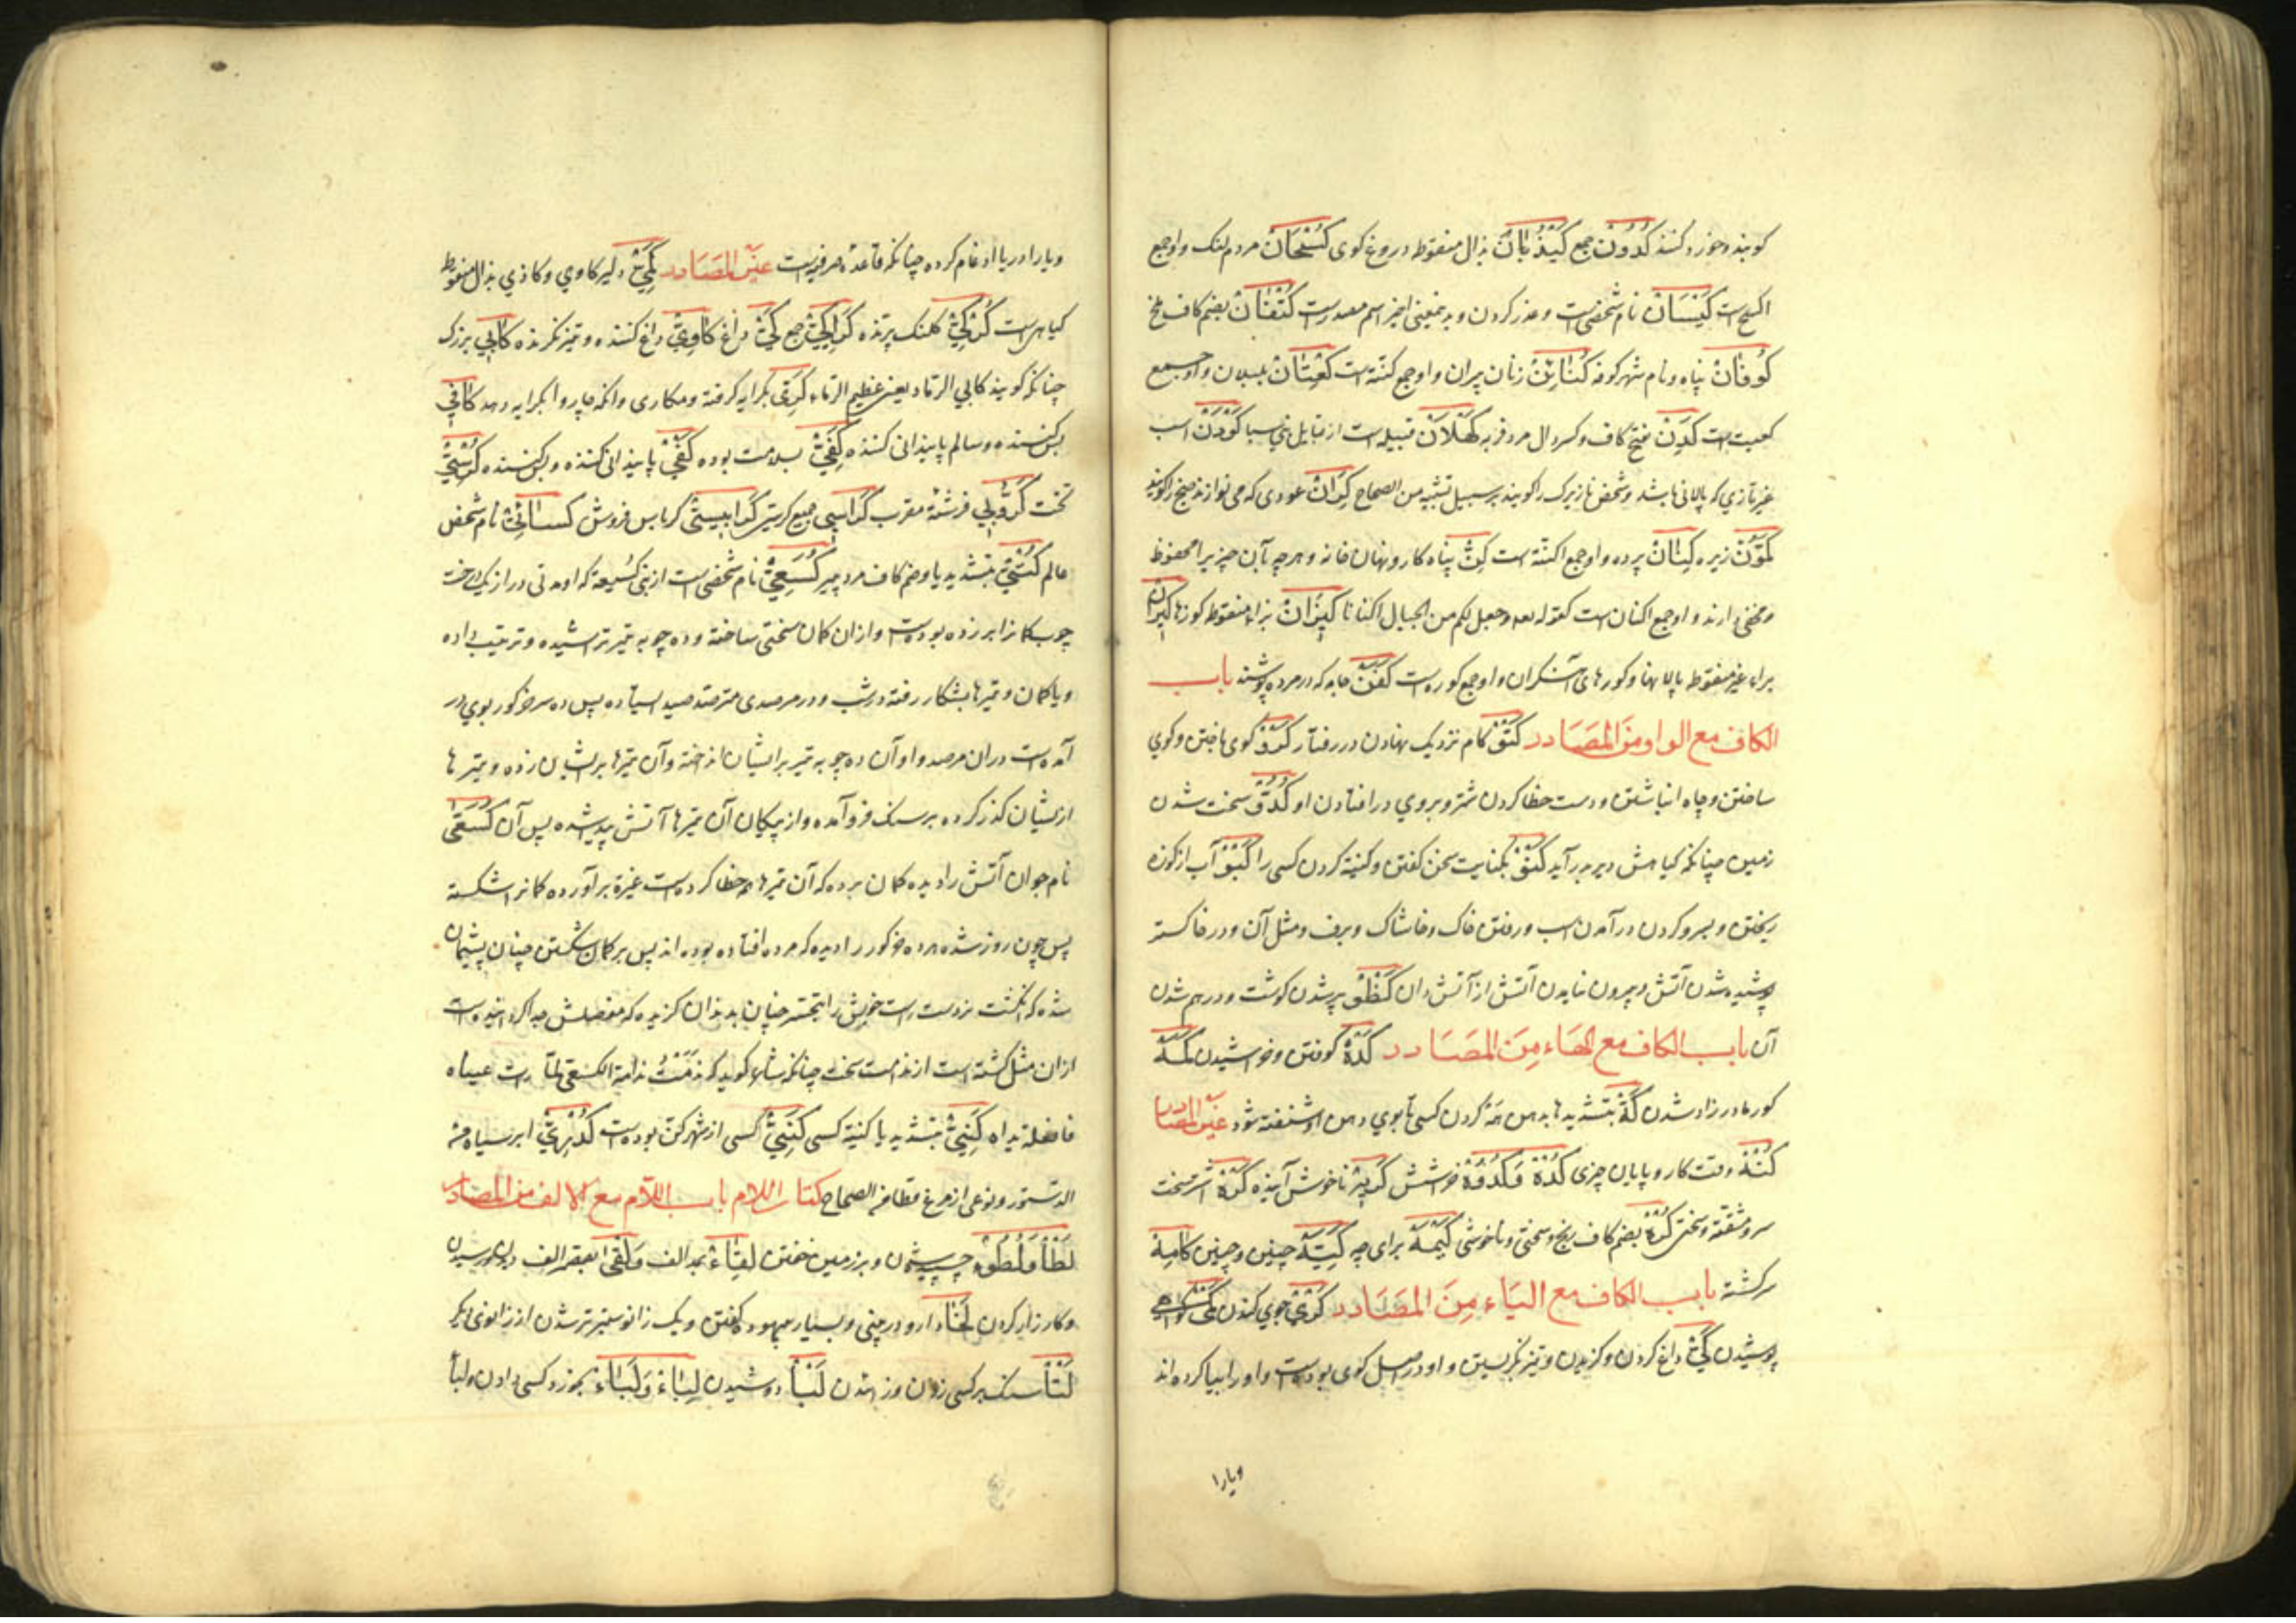 کویند و خوزد کنند کُدُونْ جمع کَیْذُبَانْ بذال منقوط دروغ کوی کُسْحَانْ مردم لنک و او جمع
اکسح است کَیْسَانْ نام شخصی است و عذر کردن و بدین معنی اخیر اسم مصدر است کُتْفَانْ بضم کاف ملخ
کُوفَانْ پناه و نام شهر کوفه کَنَائِنْ زنان پسران و او جمع کنّة است کِعْتَانْ بلبلان و او جمع
کعیت است کَدِنْ بفتح کاف و کسر دال مرد فربه کَهْلَانْ قبیله است از قبایل بنی سبا کَوْدَنْ اسب
غیر تازی که پالانی باشد و شخص نازیرک را کویند بر سبیل تشبیه من الصحاح کِرَانْ عودی که می نوازند صنج را کویند
کَمُّوْنْ زیره کِنَانْ پرده و او جمع اکنّة است کِنّْ پناه کار و نهان خانه و هر چه بآن چیزیرا محفوظ
و مخفی دارند و او جمع اکنان است کقوله تعه وجعل لکم من الجبال اکنانا کِیْزَانْ بزاء منقوط کوزها کِیْرَانْ
براء غیر منقوط پالانها و کورهای آهنکران و او جمع کور است کَفَنْ جامه که در مرده پوشند باب
الکاف مع الواو مِنَ المَصَادر کَتْوْ کام نزدیک نهادن در رفتار کَرْوْ کوی باختن و کوی
ساختن و چاه انباشتن و دست خطا کردن شتر و بروی در افتادن او کُدُوّْ سخت شدن
زمین چنانکه کیاهش دیر بر آید کَنْوْ بکنایت سخن کفتن و کنیة کردن کسی را کَبْوْ آب از کوزه
ریختن و بسرو کردن در آمدن اسب و رفتن خاک و خاشاک و برف و مثل آن و در خاکستر
پوشیده شدن آتش و بیرون نیامدن آتش از آتش دان کَظْوْ پر شدن کوشت و در هم شدن
آن باب الکاف مع الهَاء مِنَ المَصَادر کَدْهْ کوفتن و خراشیدن کَمَهْ
کور مادر زاد شدن کَهّْ بتشدید ها بدهن هَهْ کردن کسی تا بوی دهن او شنفته شود غیر المصادر
کُنْهْ وقت کار و پایان چیزی کَدْهْ وَکُدُوْهْ خراشش کَرِیْهْ ناخوش آینده کَرْهْ اشتر سخت
سر و مشقة و سختی کُرْهْ بضم کاف رنج و سختی و ناخوشی کَیْمَهْ برای چه کَیْتَهْ چنین و چنین کَامِهْ
سرکشته باب الکاف مع الیَاء مِنَ المَصَادر کَرْیْ جوی کندن کَمْیْ کواهی
پوشیدن کَیّْ داغ کردن و کزیدن و تیز نکریستن و او در اصل کوی بوده است و او را بیا کرده اند
ویارا
ویارا در یا ادغام کرده چنانکه قاعدهٔ صرفیست غیر المَصَادر کَمِیّْ دلیر کاوی و کاذی بذال منقوط
کیاهی است کُرْکِیّْ کلنک پرنده کَرَاکِیّْ جمع کَیّْ داغ کَاوِیّْ داغ کننده و تیز نکرنده کَابِی بزرک
چنانکه کویند کابی الرماد یعنی عظیم الرماد کَرِیّْ بکرایه کرفته و مکاری و آنکه چاروا بکرایه دهد کَافِی
بس کننده و سالم پایندانی کننده کِفِیّْ بسلامت بوده کَفِیّْ پایندانی کننده و بس کننده کُرْسِیّْ
تخت کَرُّوبِی فرشتهٔ مقرب کَرَاسِی جمع کرسی کَرَابِیسِیّْ کرباس فروش کسَائِیّْ نام شخص
عالم کُنْتِیّْ بتشدید یا و ضم کاف مرد پیر کُسَعِیّْ نام شخصی است از بنی کُسَیعة که او مدتی دراز یک درخت
چوب کمانرا پرورده بوده است و از ان کمان سختی ساخته و ده چوبه تیر تراشیده و ترتیب داده
و با کمان و تیرها بشکار رفته در شب و در مرصدی مترصد صید ایستاده پس ده سر خر کور بوی در
آمده است دران مرصد و او آن ده چوبه تیر بر ایشان انداخته و آن تیرها بر ایشان زده و تیرها
از ایشان کذر کرده بر سنک فرو آمده و از پیکان آن تیرها آتش پدید شده پس آن کُسَعِی
نام جوان آتش را دیده کمان برده که آن تیرها خطا کرده است غیرة بر آورده کمانرا شکسته
پس چون روز شده هر ده خر کور را دیده که مرده افتاده بوده اند پس بر کمان شکستن چنان پشیمان
شده که انکشت نر دست راست خویش را بتحسر چنان بدندان کزیده که مفصلش جدا کردانیده است
ازان مثل کشته است از ندامت سخت چنانکه شاعر کوید که نَدِمْتُ ندامة الکسعی لمّا رات عیناه
ما فعلت یداه کَنِیّْ بتشدید یا کنیة کسی کَنِیِّیّْ کسی از شهر کنّ بوده است کُدْرِیّْ ابر سیاه من
الدستور و نوعی از مرغ قطا من الصحاح کتاب اللام باب اللّام مع الالف من المصادر
لَطْأ وَلُطُوءْ چسپیدن و بر زمین خفتن لِقَاءْ بمد الف وَ لُقًی بقصر الف دیدن و رسیدن
و کارزار کردن لَخَا دارو در بینی و بسیار بیهوده کفتن و یک زانو ستبرتر شدن از زانوی دیکر
لَتْأ سنک بر کسی زدن و زدن لَبْأ دوشیدن لِبَاءْ وَلَبَاءْ بخورد کسی دادن و لبأ